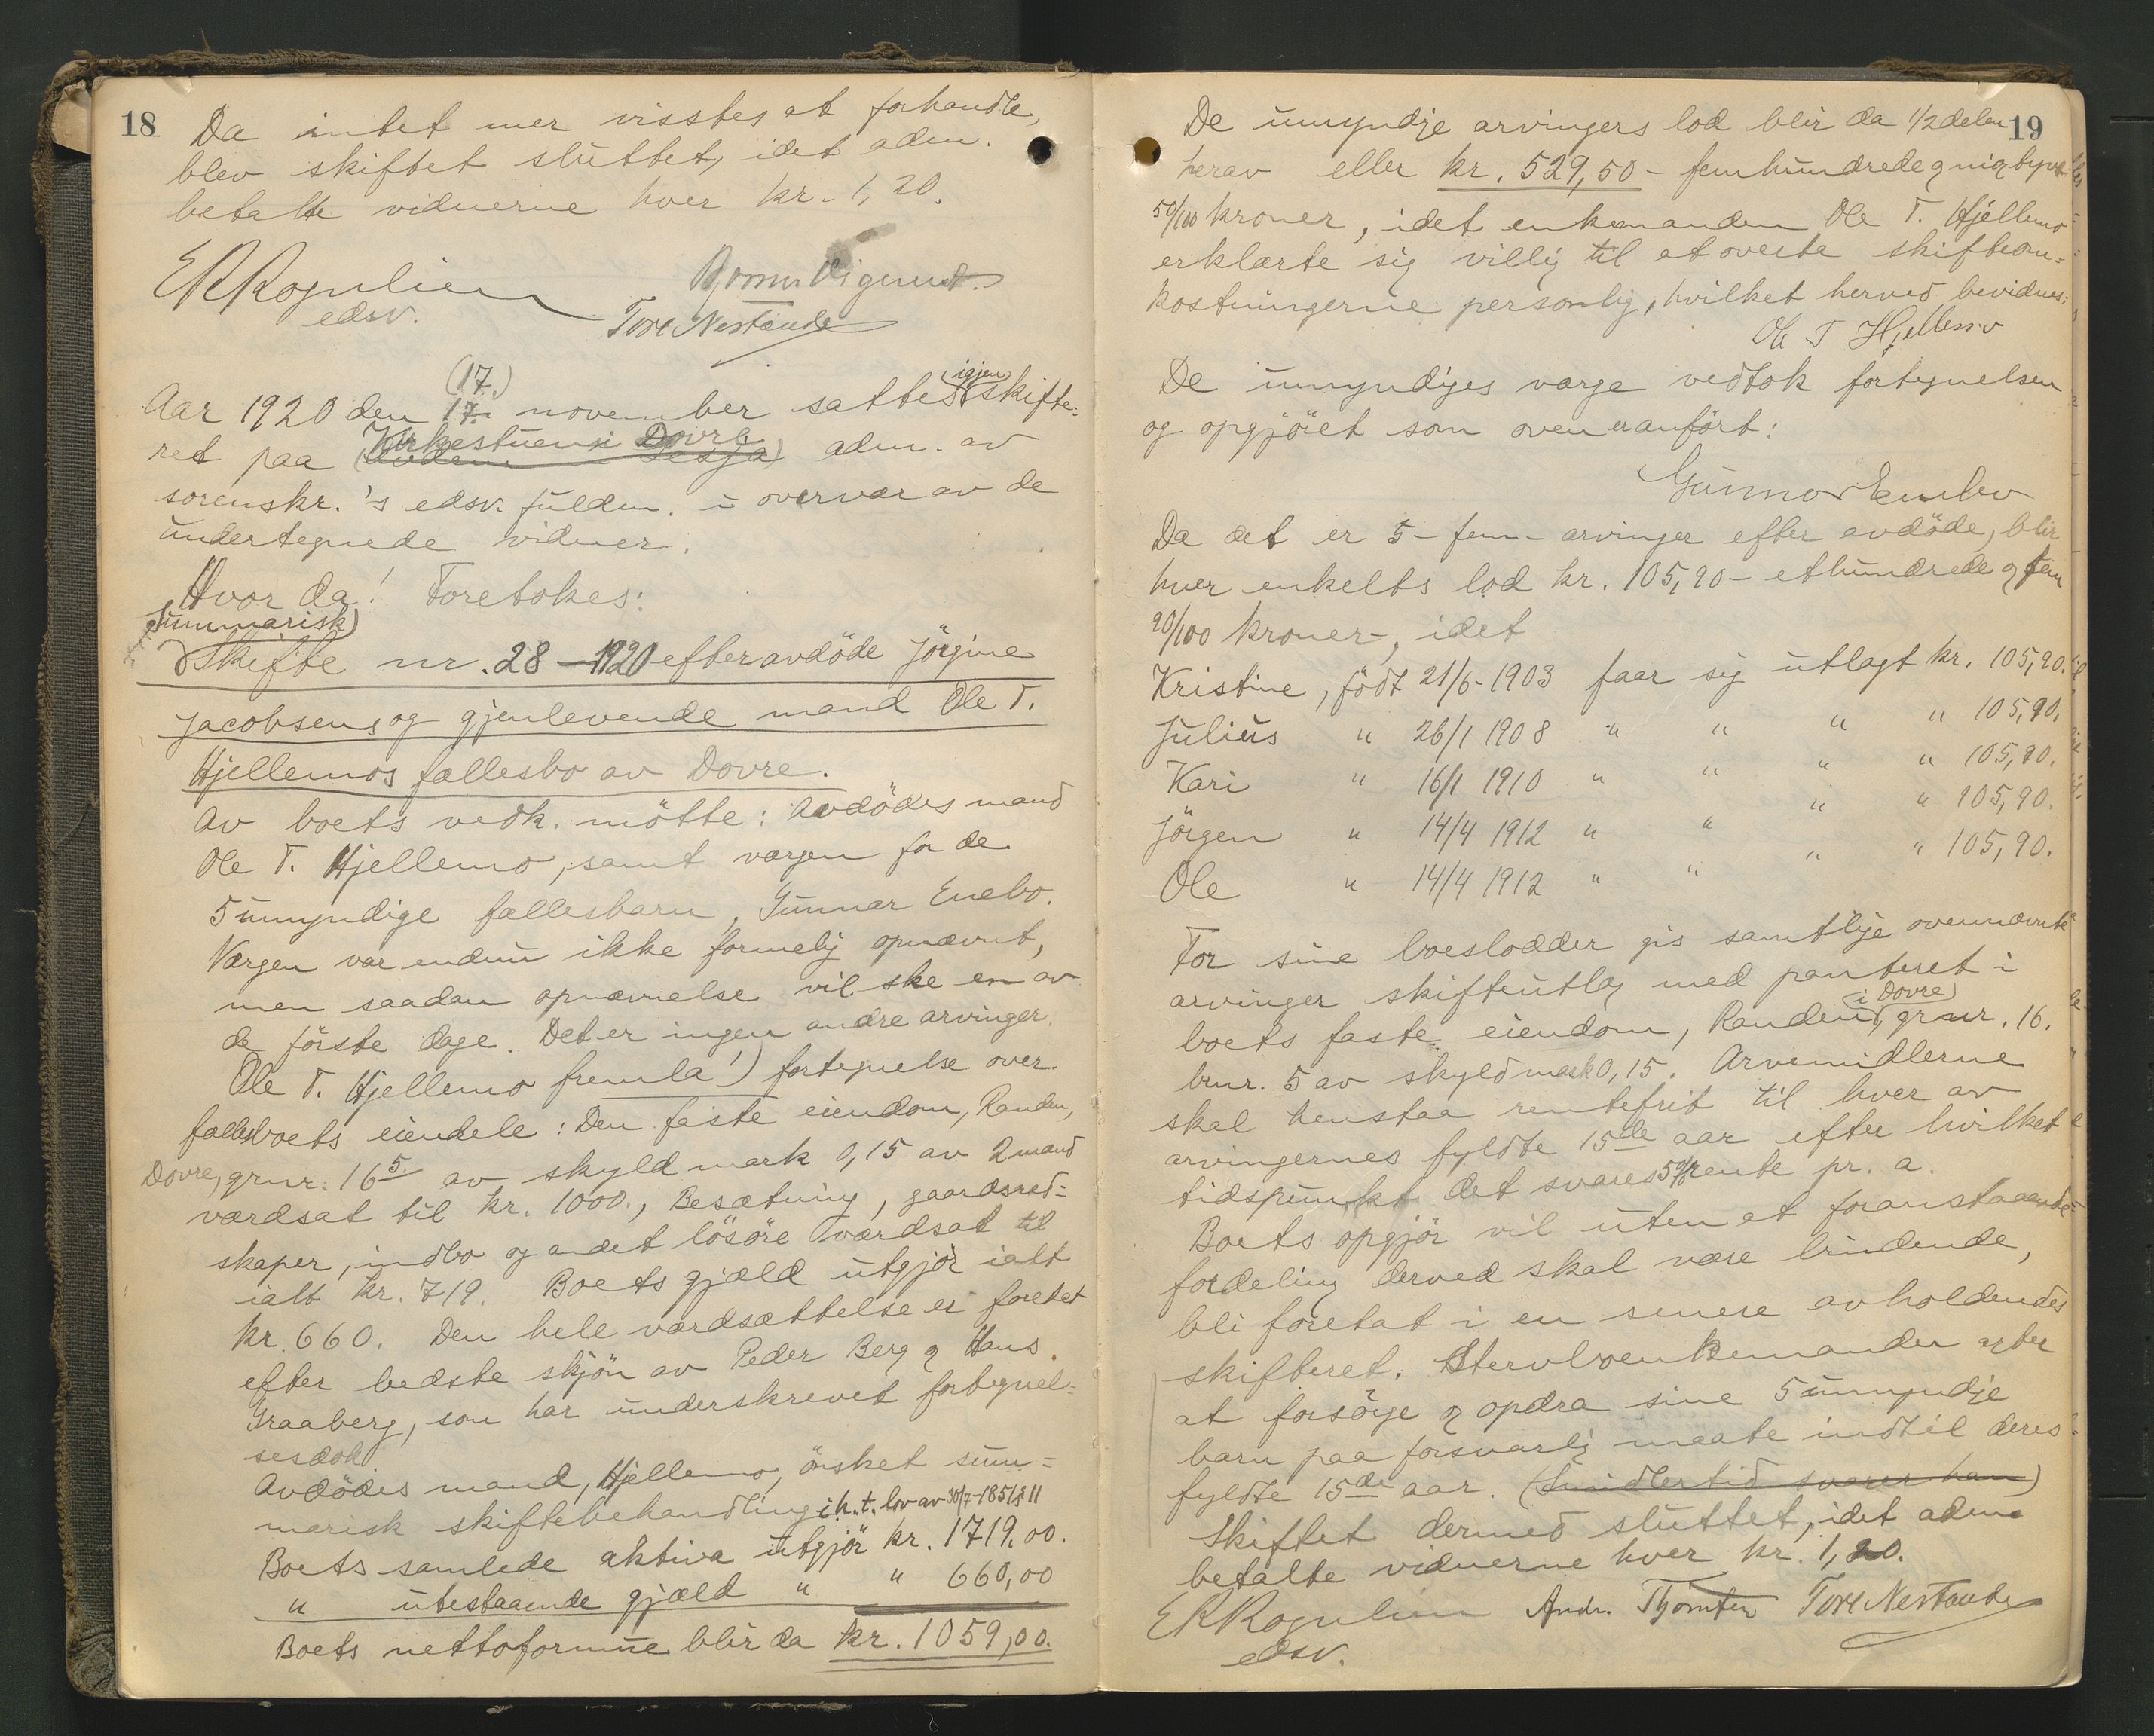 18
Da intet mer visstes at forhandle,
blev skiftet sluttet, idet adm.
betalte vidnerne hver kr. 1,20.
E R Rognlien
edsv.
Tore Nestande
(17.)
Aar 1920 den 17. november sattes igjen skifte-
ret paa Kirkestuen i Dovre adm. av
sorenskr.'s edsv. fuldm. i overvær av de
undertegnede vidner.
Hvor da! Foretokes:
Summarisk
Skifte nr. 28 – 1920 efter avdöde Jörgine
Jacobsens og gjenlevende mand Ole T.
Hjellemos fællesbo av Dovre.
Av boets vedk. mötte: Avdödes mand
Ole T. Hjellemo, samt værgen for de
5 umyndige fællesbarn, Gunnar Enebo.
Værgen var endnu ikke formelig opnævnt,
men saadan opnævnelse vil ske en av
de förste dage. Det er ingen andre arvinger.
Ole T. Hjellemo fremla!) fortegnelse over
fællesboets eiendele: Den faste eiendom, Randen,
Dovre, grnr. 16 5 av skyld mark 0,15 av 2 mand
værdsat til kr. 1000., Besætning, gaardsred-
skaper, indbo og andet lösöre værdsat til
ialt kr. 719. Boets gjæld utgjör ialt
kr. 660. Den hele værdsættelse er foretat
efter bedste skjön av Peder Berg og Hans
Graaberg, som har underskrevet fortegnel-
sesdok.
Avdödes mand, Hjellemo, önsket sum-
marisk skiftebehandling i h.t. lov av 30/7-1851 § 11
Boets samlede aktiva utgjör kr. 1719.00.
" utestaaende gjæld " " 660,00
Boets nettoformue blir da kr. 1059,00.
19
De umyndige arvingers lod blir da 1/2 delen
herav eller kr. 529,50 – femhundrede og niogtyve
50/100 kroner, idet enkemanden Ole T. Hjellemo
erklærte sig villig til at overta skifteom-
kostningerne personlig, hvilket herved bevidnes:
Ole T Hjellemo
De umyndiges værge vedtok fortegnelsen
og opgjöret som oven er anfört:
Gunnar Enebo
Da det er 5 – fem – arvinger efter avdöde, blir
hver enkelts lod kr. 105,90 – ethundrede og fem
90/100 kroner –, idet
Kristine, födt 21/6 - 1903 faar sig utlagt kr. 105,90.
Julius " 26/1 1908 " " " " 105,90.
Kari " 16/1 1910 " " " " 105,90.
Jörgen " 14/4 1912 " " " " 105,90.
Ole " 14/4 1912 " " " " 105,90.
For sine boeslodder gis samtlige ovennævnte
arvinger skifteutlæg med panteret i
boets faste eiendom, Randen i Dovre, grnr. 16.
brnr. 5 av skyldmark 0,15. Arvemidlerne
skal henstaa rentefrit til hver av
arvingernes fyldte 15de aar efter hvilket
tidspunkt det svares 5% rente pr. a.
Boets opgjör vil uten at foranstaaende
fordeling derved skal være bindende,
bli foretat i en senere avholdendes
skifteret. Stervboenkemanden agter
at forsörge og opdra sine 5 umyndige
barn paa forsvarlig maate indtil deres
fyldte 15de aar. (Imidlertid svarer han)
Skiftet dermed sluttet, idet adm.
betalte vidnerne hver kr. 1,20.
E R Rognlien
Tore Nestande
edsv.